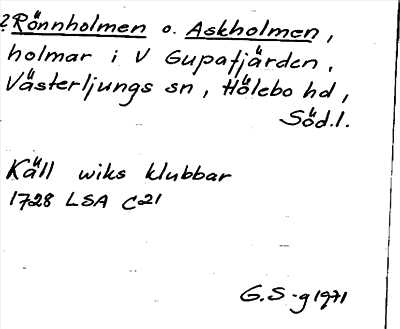 ?Rönnholmen o. Askholmen,
holmar i V Gupafjärden,
Västerljungs sn, Hölebo hd,
Söd.l.
Käll wiks klubbar
1728 LSA C21
G.S-g 1971